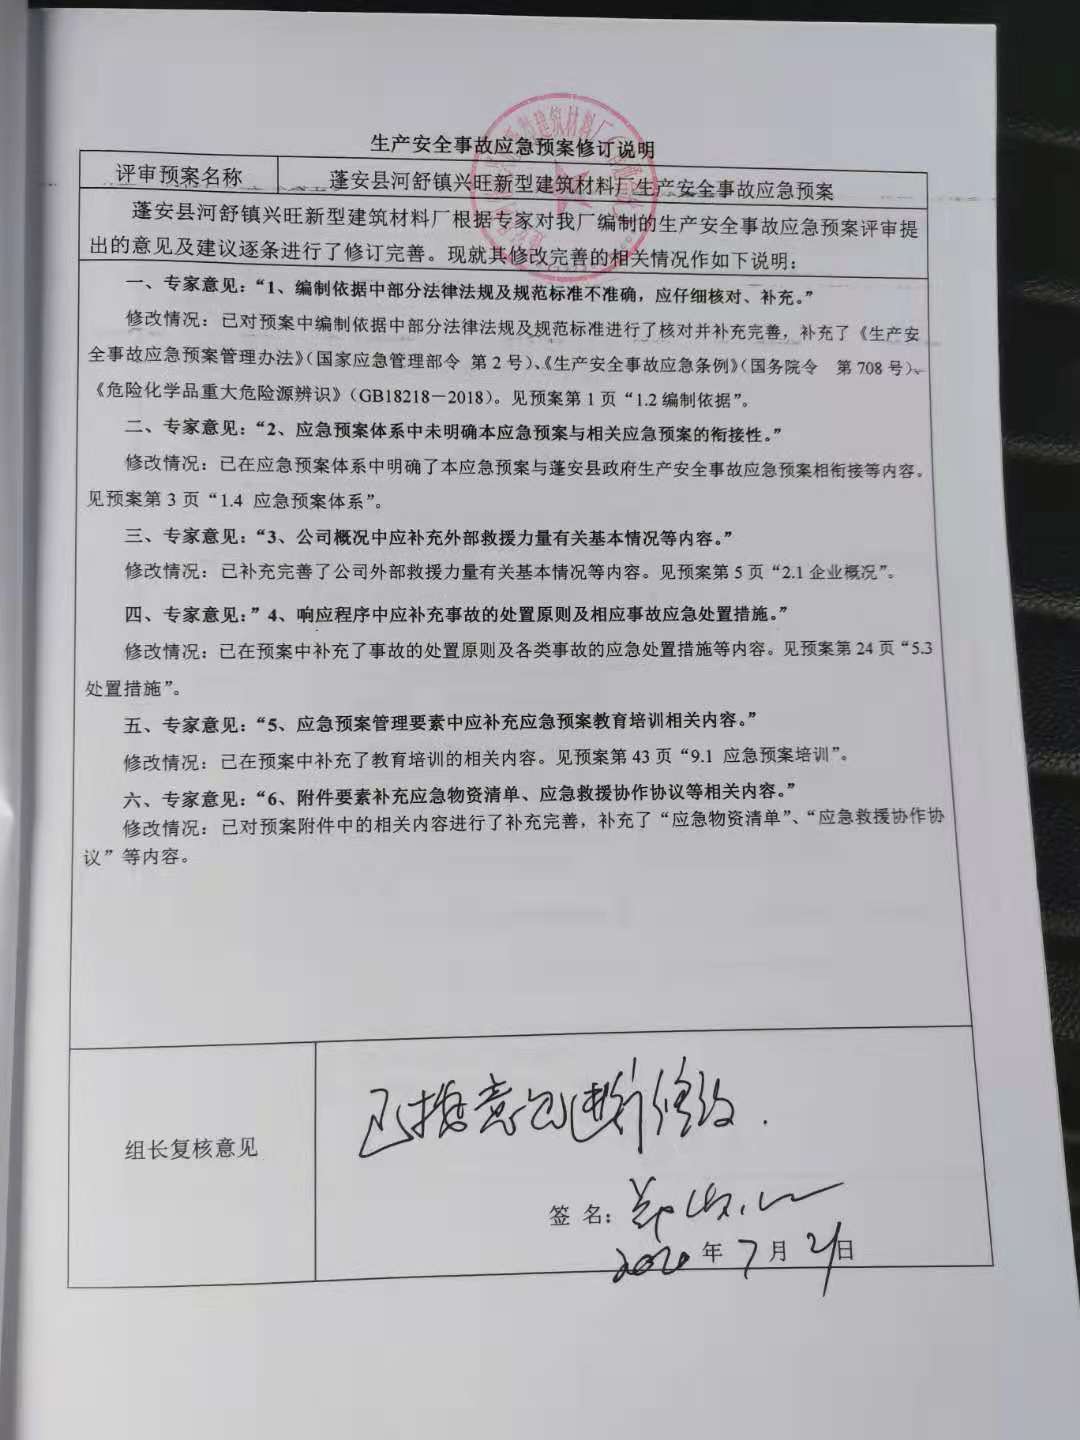 生产安全事故应急预案修订说明
评审预案名称 蓬安县河舒镇兴旺新型建筑材料厂生产安全事故应急预案
蓬安县河舒镇兴旺新型建筑材料厂根据专家对我厂编制的生产安全事故应急预案评审提
出的意见及建议逐条进行了修订完善。现就其修改完善的相关情况作如下说明：
一、专家意见：“1、编制依据中部分法律法规及规范标准不准确，应仔细核对、补充。”
修改情况：已对预案中编制依据中部分法律法规及规范标准进行了核对并补充完善，补充了《生产安
全事故应急预案管理办法》（国家应急管理部令 第 2 号）、《生产安全事故应急条例》（国务院令 第 708 号）、
《危险化学品重大危险源辨识》（GB18218－2018）。见预案第 1 页“1.2 编制依据”。
二、专家意见：“2、应急预案体系中未明确本应急预案与相关应急预案的衔接性。”
修改情况：已在应急预案体系中明确了本应急预案与蓬安县政府生产安全事故应急预案相衔接等内容。
见预案第 3 页“1.4 应急预案体系”。
三、专家意见：“3、公司概况中应补充外部救援力量有关基本情况等内容。”
修改情况：已补充完善了公司外部救援力量有关基本情况等内容。见预案第 5 页“2.1 企业概况”。
四、专家意见：”4、响应程序中应补充事故的处置原则及相应事故应急处置措施。”
修改情况：已在预案中补充了事故的处置原则及各类事故的应急处置措施等内容。见预案第 24 页“5.3
处置措施”。
五、专家意见：“5、应急预案管理要素中应补充应急预案教育培训相关内容。”
修改情况：已在预案中补充了教育培训的相关内容。见预案第 43 页“9.1 应急预案培训”。
六、专家意见：“6、附件要素补充应急物资清单、应急救援协作协议等相关内容。”
修改情况：已对预案附件中的相关内容进行了补充完善，补充了“应急物资清单”、“应急救援协作协
议”等内容。
组长复核意见
已按意见进行修改.
签 名：
2020 年 7 月 21 日